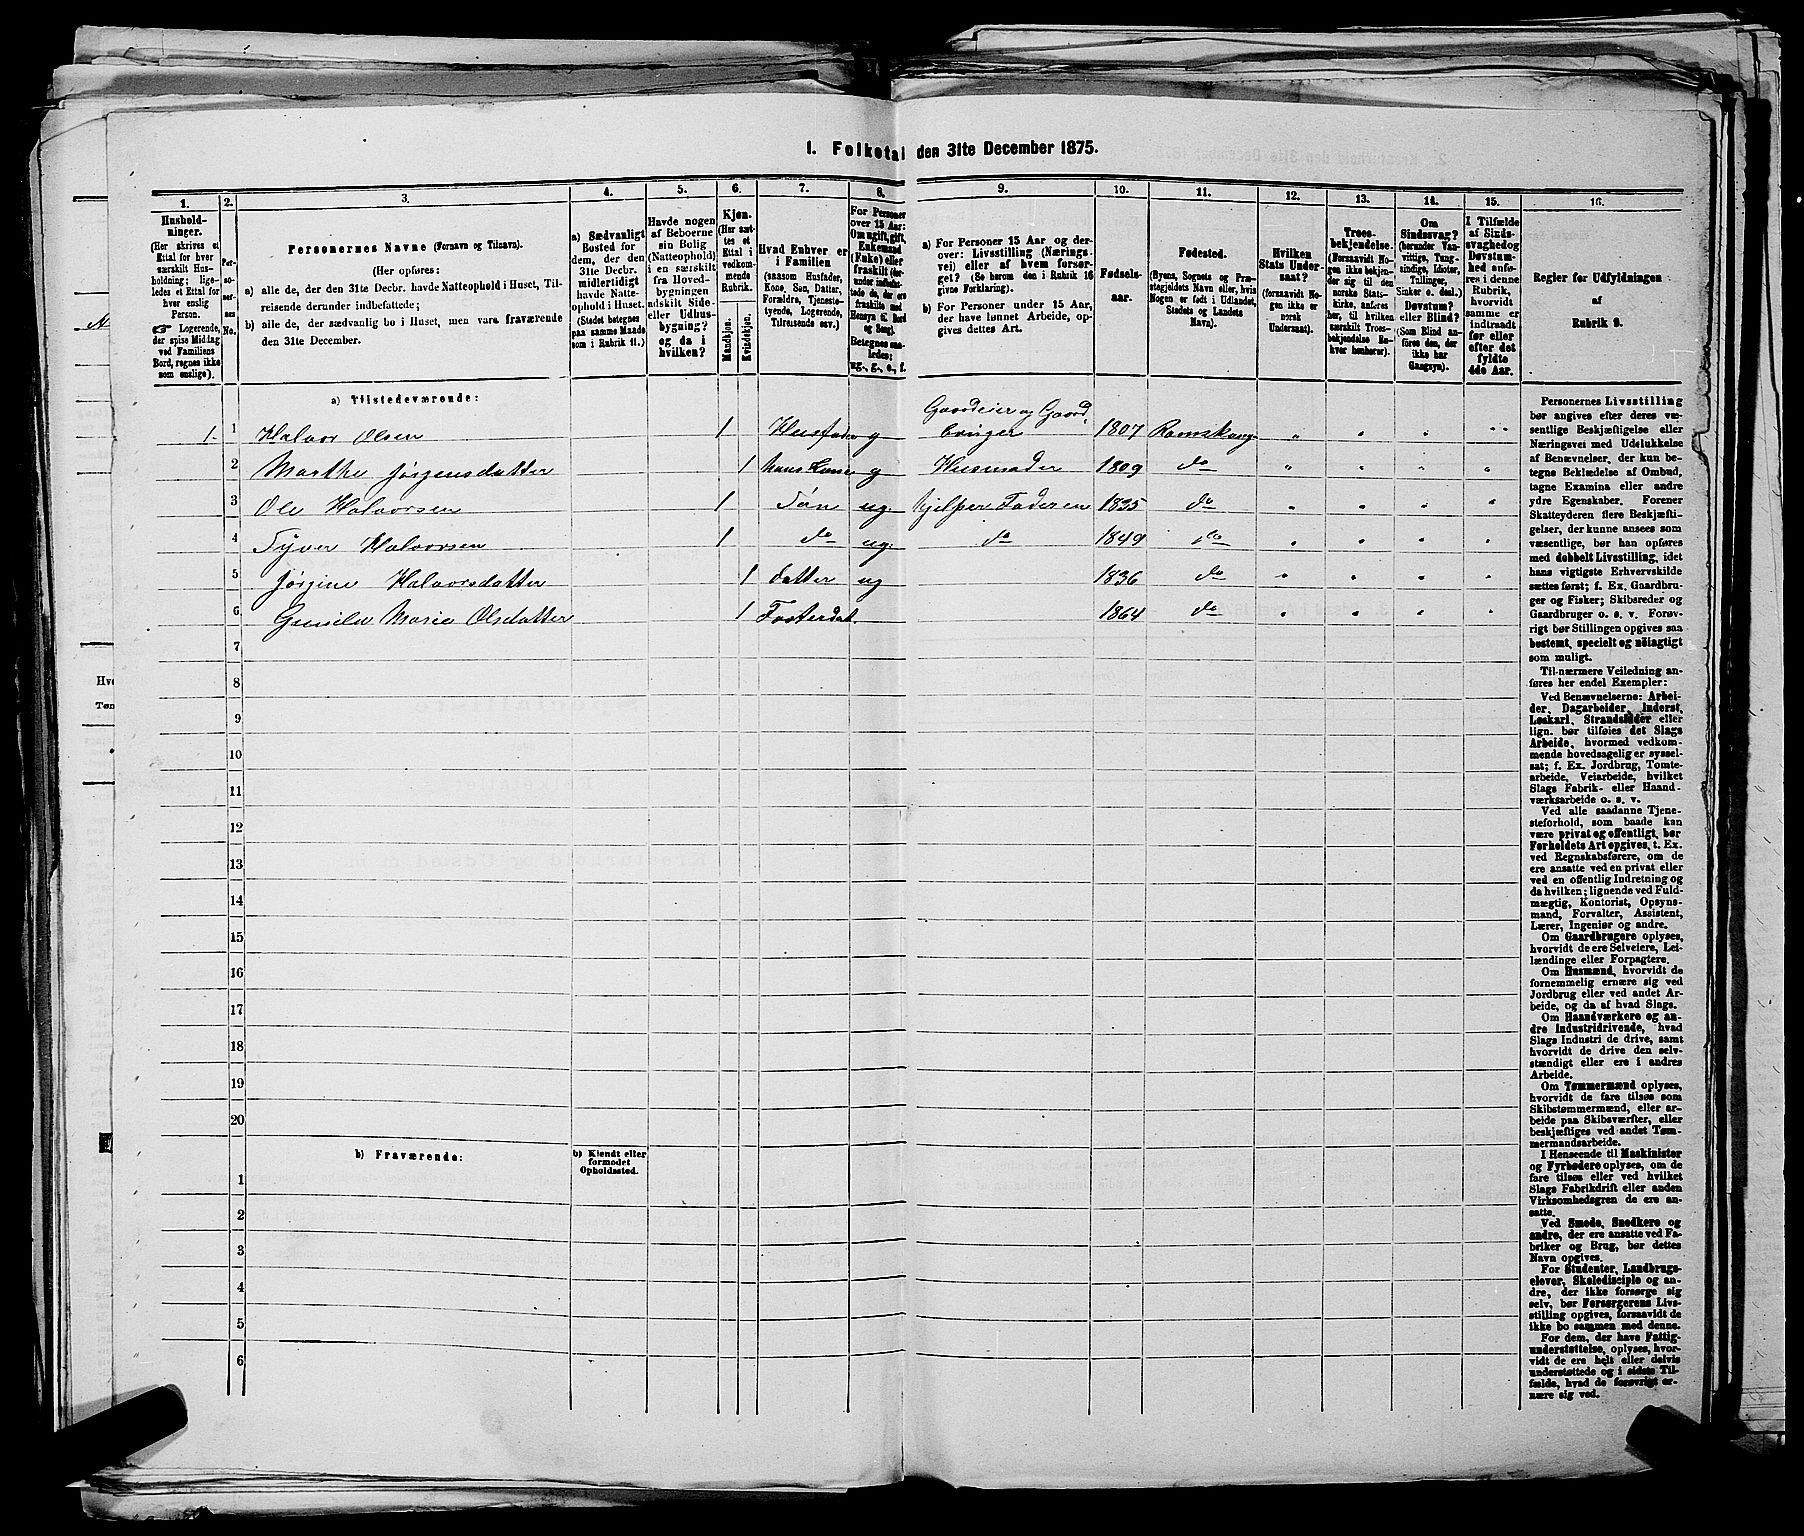 1. Folketal den 31te December 1875.
1. 2. 3. 4. 5. 6. 7. 8. 9. 10. 11. 12. 13. 14. 15. 16.
Hushold-
ninger.
(Her skrives et
Ettal for hver
særskilt Hus-
holdning; lige-
ledes et Ettal for
hver enslig
Person.
☞ Logerende,
der spise Middag
ved Familiens
Bord, regnes ikke
som enslige).
Per-
so-
ner-
nes
No.
Personernes Navne (Fornavn og Tilnavn).
(Her opføres:
a) alle de, der den 31te Decbr. havde Natteophold i Huset, Til-
reisende derunder indbefattede;
b) alle de, der sædvanlig bo i Huset, men vare fraværende
den 31te December.
a) Sædvanligt
Bosted for
dem, der den
31te Decbr.
midlertidigt
havde Natte-
ophold i Huset.
(Stedet betegnes
paa samme Maade
som i Rubrik 11.)
Havde nogen
af Beboerne
sin Bolig
(Natteophold)
i en særskilt
fra Hoved-
bygningen
adskilt Side-
eller Udhus-
bygning?
og da i
hvilken?
Kjøn.
(Her sæt-
tes et
Ettal i
vedkom-
mende
Rubrik.
Mandkjøn.
Kvindekjøn.
Hvad Enhver er
i Familien
(saasom Husfader,
Kone, Søn, Datter,
Forældre, Tjeneste-
tyende, Logerende,
Tilreisende osv.)
For Personer
over 15 Aar:
Om ugift, gift,
Enkemand
(Enke) eller
fraskilt
Betegnes saa-
ledes:
ug., g., e., f.
a) For Personer 15 Aar og der-
over: Livsstilling (Nærings-
vei) eller af hvem forsør-
get? (Se herom den i Rubrik 16
givne Forklaring).
b) For Personer under 15 Aar,
der have lønnet Arbeide, op-
gives dettes Art.
Fødsels-
aar.
Fødested.
(Byens, Sognets og Præ-
stegjeldets Navn eller, hvis
Nogen er født i Udlandet,
Stedets og Landets
Navn).
Hvilken
Stats Under-
saat?
(forsaavidt No-
gen ikke er
norsk
Undersaat).
Troes-
bekjendelse.
(Forsaavidt No-
gen ikke bekjen-
der sig til den
norske Stats-
kirke, anføres
her, til hvilken
særskilt Troes-
bekjendelse En-
hver henhører).
Om
Sindssvag?
(herunder Van-
vittige, Tung-
sindige, Idioter,
Tullinger,
Sinker o. desl.)
Døvstum?
eller Blind?
(Som Blind an-
føres den, der
ikke har
Gangsyn).
I Tilfælde
af Sinds-
svaghed og
Døvstum-
hed anfø-
res i denne
Rubrik,
hvorvidt
samme er
indtraadt
før eller
efter det
fyldte
4de Aar.
Regler for Udfyldningen
af
Rubrik 9.
a) Tilstedeværende:
1. 1 Halvor Olsen 1 Husfader g Gaardeier og Gaard- bruger 1807 Romskoug " " " "
2 Marthe Jørgensdatter 1 hans Kone g Husmoder 1809 do " " " "
3 Ole Halvorsen 1 Søn ug. hjelper Faderen 1835 do " " " "
4 Syver Halvorsen 1 do ug. do 1849 do " " " "
5 Jørgine Halvorsdatter 1 Datter ug 1836 do " " " "
6 Marie Olsdatter 1 Fosterdat. 1864 do " " " "
7
8
9
10
11
12
13
14
15
16
17
18
19
20
b) Fraværende:
b) Kjendt eller
formodet
Opholdssted.
1
2
3
4
5
6
Personernes Livsstilling
bør angives efter deres væ-
sentlige Beskjæftigelse eller
Næringsvei med Udelukkelse
af Benævnelser, der kun be-
tegne Beklædelse af Ombud,
tagne Examina eller andre
ydre Egenskaber. Forener
Skatteyderen flere Beskjæfti-
gelser, der kunne ansees som
væsentlige, bør han opføres
med dobbelt Livsstilling, idet
hans vigtigste Erhvervskilde
sættes først; f. Ex. Gaardbru-
ger og Fisker; Skibsreder og
Gaardbruger o. s. v. Forøv-
rigt bør Stillingen opgives saa
bestemt, specielt og nöiagtigt
som muligt.
Til nærmere Veiledning an-
føres her endel Exempler:
Ved Benævnelserne: Arbei-
der, Dagarbeider, Inderst,
Løskarl, Strandsidder eller
lign. bør tilføies det Slags
Arbeide, hvormed vedkom-
mende hovedsagelig er syssel-
sat; f. Ex. Jordbrug, Tomte-
arbeide, Veiarbeide, hvilket
Slags Fabrik- eller Haand-
værksarbeide o. s. v.
Ved alle saadanne Tjene-
steforhold, som baade kan
være privat og offentligt, bør
Forholdets Art opgives, t. Ex.
ved Regnskabsførere, om de
ere ansatte ved en privat eller
ved en offentlig Indretning og
da hvilken; lignende ved Fuld-
mægtig, Kontorist, Opsyns-
mand, Forvalter, Assistent,
Lærer, Ingeniør og andre.
Om Gaardbrugere oplyses,
hvorvidt de ere Selveiere, Lei-
lændinge eller Forpagtere.
Om Husmænd, hvorvidt de
fornemmelig ernære sig ved
Jordbrug eller ved andet Ar-
beide, og da af hvad Slags.
Om Haandværkere og an-
dre Industridrivende, hvad
Slags Industri de drive, samt
hvorvidt de drive den selv-
stændigt eller ere i andres
Arbeide.
Om Tømmermænd oplyses,
hvorvidt de fare tilsøs som
Skibstømmermænd, eller ar-
beide paa Skibsværfter, eller
beskjæftiges ved andet Tøm-
mermandsarbeide.
I Henseende til Maskinister
og Fyrbødere oplyses, om de
fare tilsøs eller ved hvilket
Slags Fabrikdrift eller anden
Virksomhedsgren de ere an-
satte.
Ved Smede, Snedkere og
andre, der ere ansatte ved Fa-
briker og Brug, bør dettes
Navn opgives.
For Studenter, Landbrugs-
elever, Skoledisciple og an-
dre, der ikke forsørge sig
selv, bør Forsørgerens Livs-
stilling opgives, forsaavidt de
ikke bo sammen med denne.
For dem, der have Fattig-
understøttelse, oplyses, hvor-
vidt de ere helt eller delvis
understøttede og i sidste Til-
fælde, hvad de forøvrigt er-
nære sig ved.